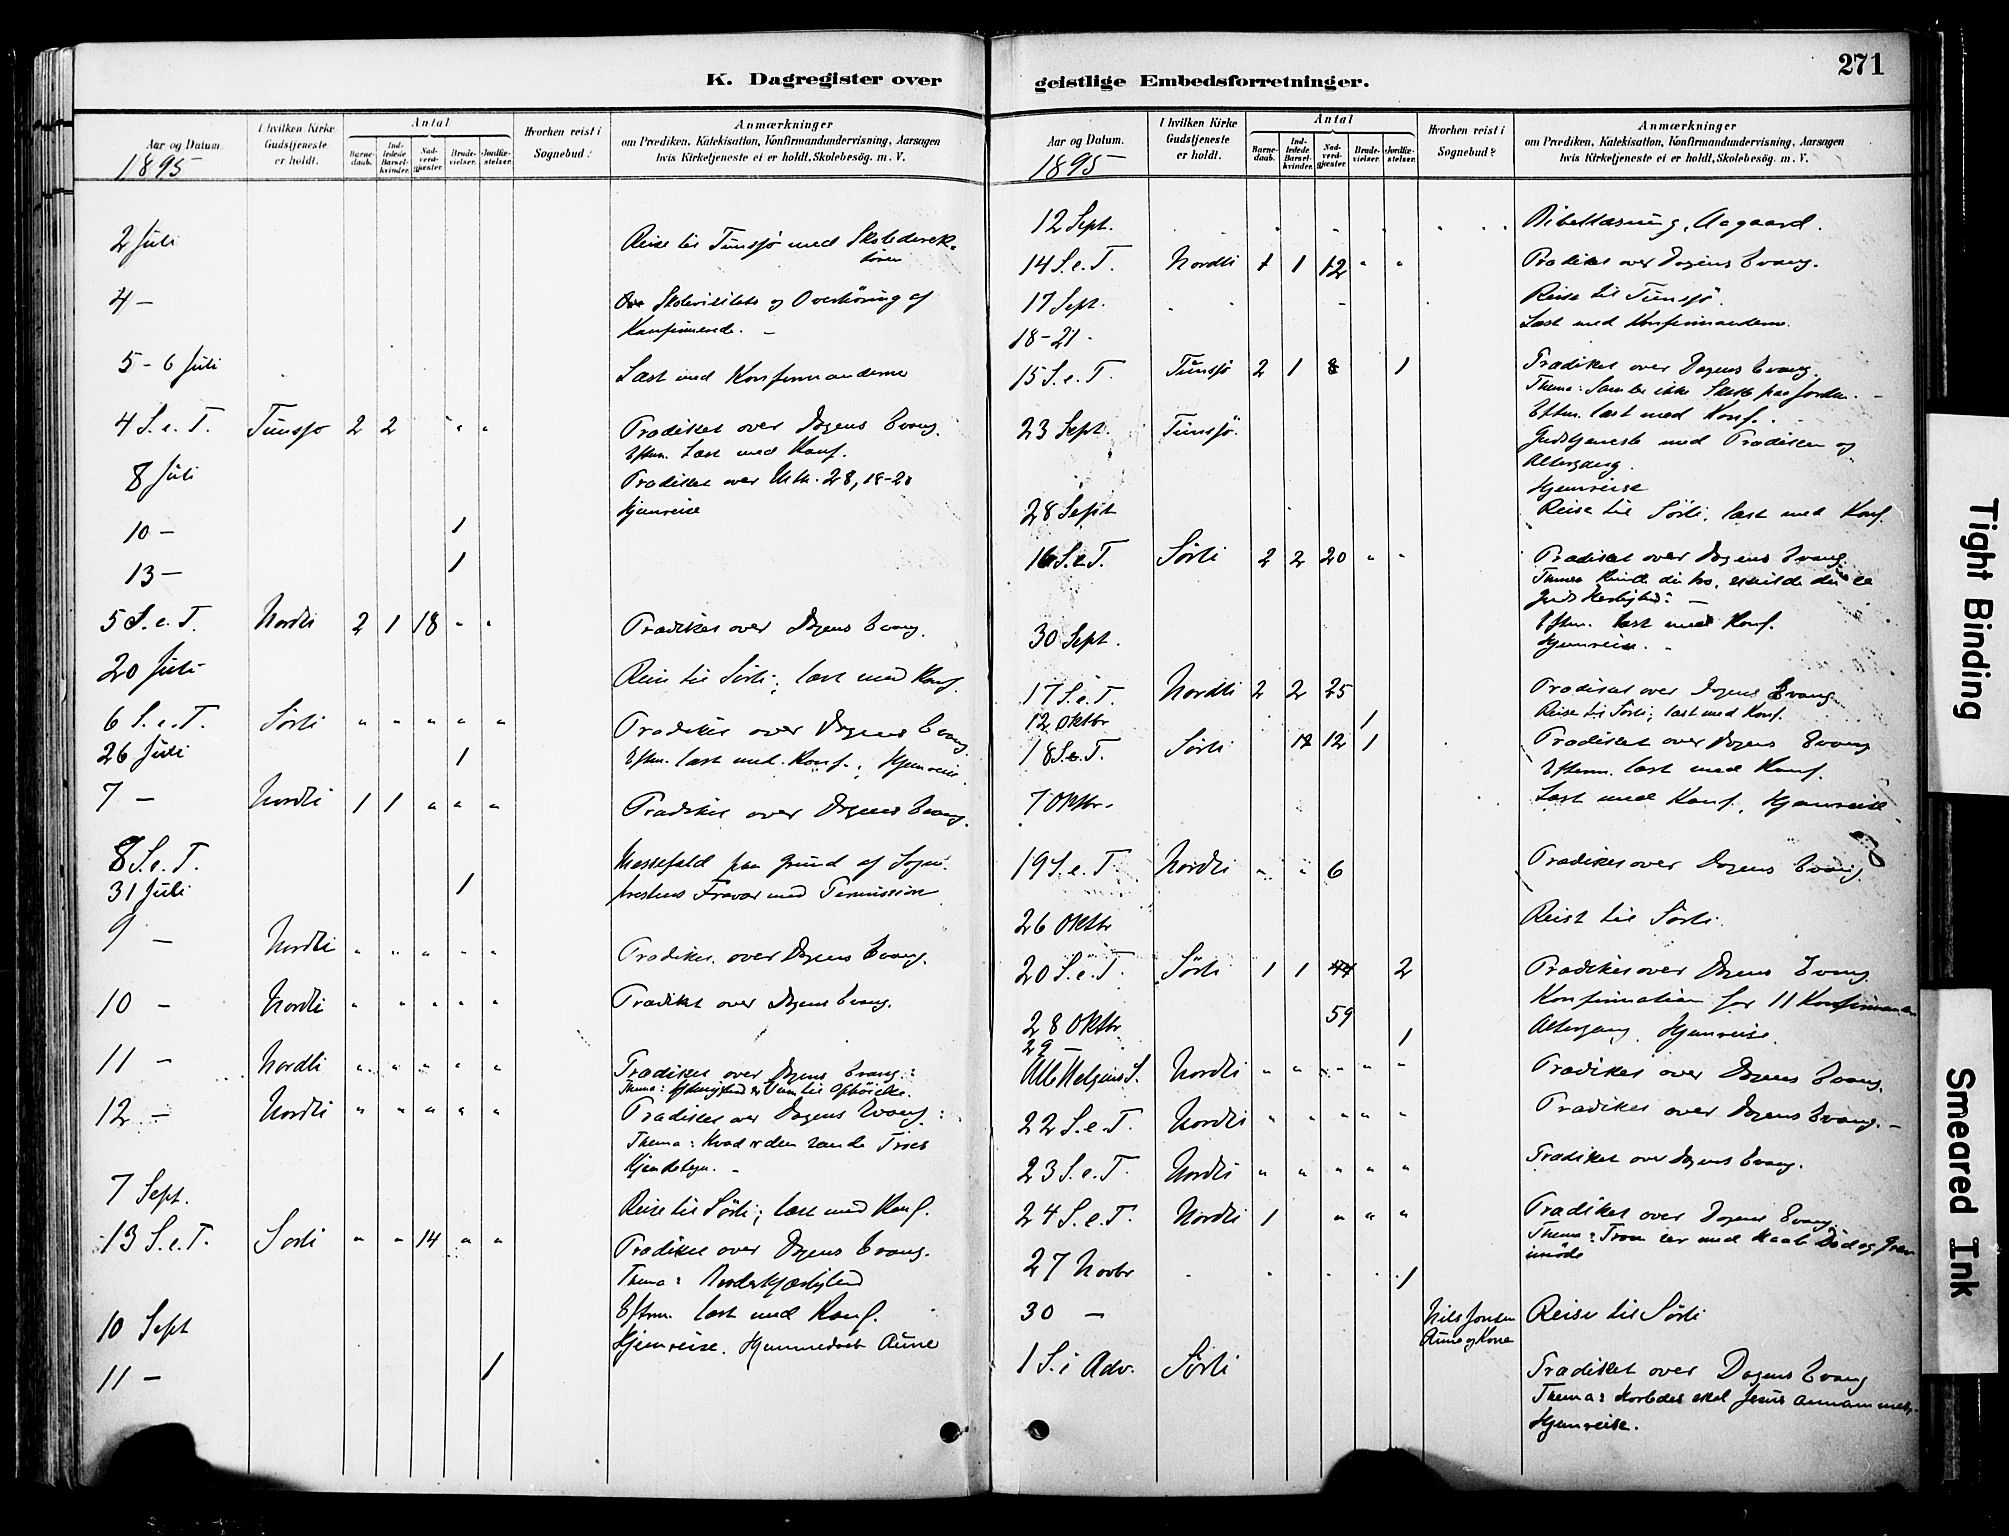 K. Dagregister over
Aar og Datum.
1895
I hvilken Kirke Gudstjeneste er holdt.
Antal
Barne-daab.
Ind-ledede Barsel-kvinder.
Nad-verd-gjæster.
Brude-vielser.
Jordfæ-stelser.
Hvorhen reist i Sognebud?
Anmærkninger
om Prædiken, Katekisation, Konfirmandundervisning, Aarsagen
hvis Kirketjeneste ei er holdt, Skolebesög. m. V.
2 Juli Reise til Tunsjø med Skoledirek-
tøren
4 – Skolevisitats og Overhøring af
Konfirmerede. –
5 - 6 Juli Læst med Konfirmanderne
4 S. e. T. Tunsjø 2 2 " " " Prædiket over Dagens Evang.
Efterm. Læst med Konf.
8 Juli Prædiket over Mth. 28, 18-20
Hjemreise
10 – 1
13 – 1
5 S. e. T. Nordli 2 1 18 " " Prædiket over Dagens Evang.
20 Juli Reise til Sørli; læst med Konf.
6 S. e. T. Sørli " " " " " Prædiket over Dagens Evang
26 Juli 1 Efterm. læst med Konf.; Hjemreise
7 – Nordli 1 1 " " " Prædiket over Dagens Evang.
8 S. e. T. Messefald paa Grund af Sogne-
31 Juli 1 prestens Fravær med Permission
9 – Nordli " " " " " Prædiket over Dagens Evang.
10 – Nordli " " " " " Prædiket over Dagens Evang.
11 – Nordli " " " " " Prædiket over Dagens Evang.:
Thema: Ydmyghed er Veien til Ophøielse.
12 – Nordli " " " " " Prædiket over Dagens Evang.:
Thema: Hvad er den sande Troes
Kjendetegn. –
7 Sept. Reise til Sørli; læst med Konf.
13 S. e. T. Sørli " " 14 " " Prædiket over Dagens Evang.
Thema: Broderkjærlighed
Efterm. læst med Konf.
10 Sept Hjemreise. Hjemmedøbt Aune
11 – 1
geistlige Embedsforretninger.
271
Aar og Datum.
1895
I hvilken Kirke Gudstjeneste er holdt.
Antal
Barne-daab.
Ind-ledede Barsel-kvinder.
Nad-verd-gjæster.
Brude-vielser.
Jordfæ-stelser.
Hvorhen reist i Sognebud?
Anmærkninger
om Prædiken, Katekisation, Konfirmandundervisning, Aarsagen
hvis Kirketjeneste ei er holdt, Skolebesög. m. V.
12 Sept. Bibellæsning, Aagaard.
14 S. e. T. Nordli 1 1 12 " " Prædiket over Dagens Evang.
17 Sept. Reise til Tunsjø.
18 - 21 Læst med Konfirmanderne.
15 S. e. T. Tunsjø 2 1 8 1 Prædiket over Dagens Evang.
Thema: Samler ikke Skatte paa Jorden. –
Efterm. læst med Konf.
23 Sept. Tunsjø. Gudstjeneste med Prædiken og
Altergang.
Hjemreise
28 Sept Reise til Sørli, læst med Konf.
16 S. e. T. Sørli 2 2 20 " " Prædiket over Dagens Evang.
Thema: Kunde du tro, skulde du se
Guds Herlighed: –
Efterm. læst med Konf.
30 Sept. Hjemreise.
17 S. e. T. Nordli 2 2 25 Prædiket over Dagens Evang
12 Oktbr 1 Reise til Sørli; læst med Konf.
18 S. e. T. Sørli 12 12 1 Prædiket over Dagens Evang
Efterm. læst med Konf.
7 Oktbr. Læst med Konf., Hjemreise
19 S. e. T. Nordli " " 6 Prædiket over Dagens Evang.
26 Oktbr Reist til Sørli.
20 S. e. T. Sørli 1 1 44 2 Prædiket over Dagens Evang
59 Konfirmation for 11 Konfirmander
28 Oktbr Altergang. Hjemreise.
29 – 1
Alle Helgens S. Nordli " " " " " Prædiket over Dagens Evang.
22 S. e. T. Nordli " " " " " Prædiket over Dagens Evang. –
23 S. e. T. Nordli " " " " " Prædiket over Dagens Evang.
24 S. e. T. Nordli 1 " " " Prædiket over Dagens Evang.
Thema: Troen ser med Haab Død og Grav
imøde
27 Novbr 1
30 – Nils Jonsen Aune og Kone Reise til Sørli
1 S. i Adv. Sørli Prædiket over Dagens Evang
Thema: Hvorledes skal Jesus annammes.
Hjemreise.
Tight Binding
Smeared Ink